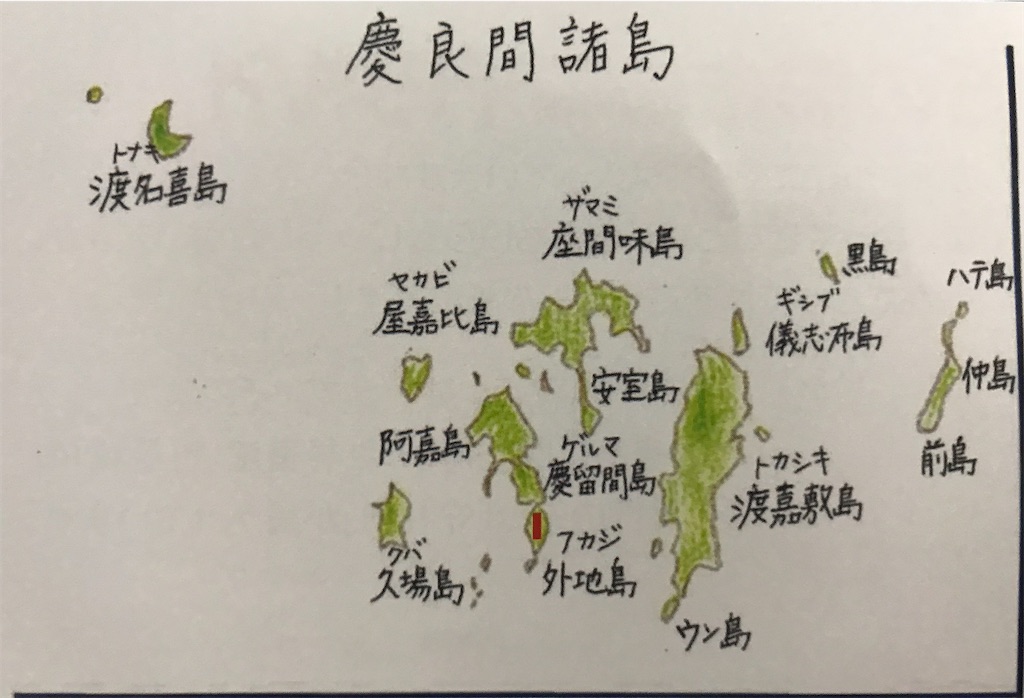 慶良間諸島
トナキ
渡名喜島
ザマミ
座間味島
黒島
ハテ島
ヤカビ
屋嘉比島
ギシブ
儀志布島
仲島
安室島
阿嘉島
ゲルマ
慶留間島
前島
トカシキ
渡嘉敷島
フカジ
外地島
クバ
久場島
ウン島